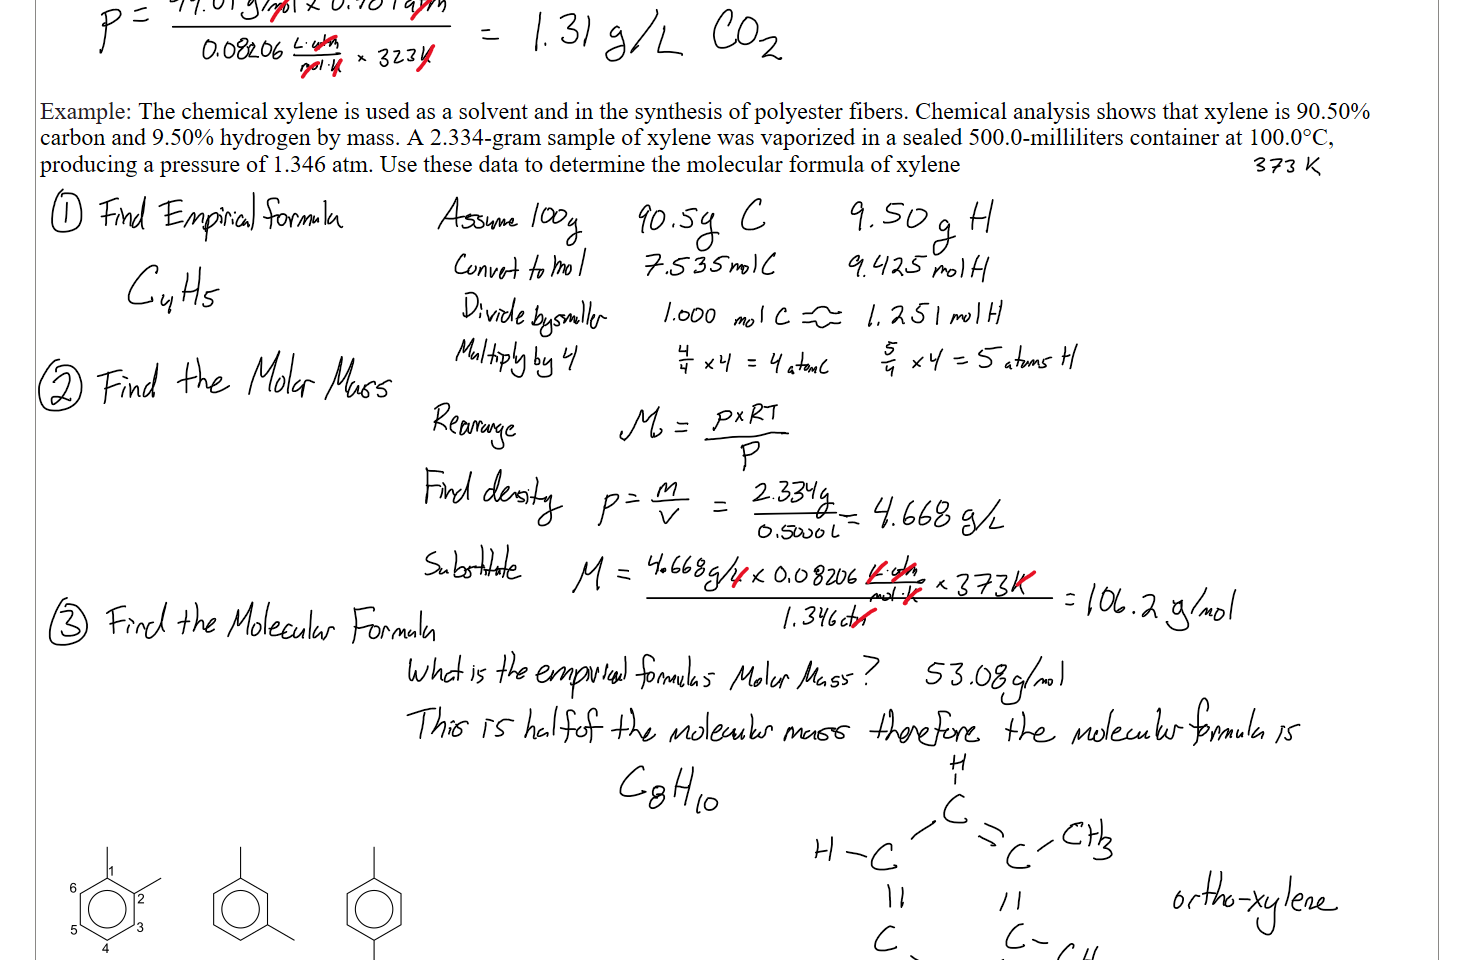 P = 44.01 g/mol × 0.781 atm
0.08206 L·atm/mol·K × 323K = 1.31 g/L CO2
Example: The chemical xylene is used as a solvent and in the synthesis of polyester fibers. Chemical analysis shows that xylene is 90.50%
carbon and 9.50% hydrogen by mass. A 2.334-gram sample of xylene was vaporized in a sealed 500.0-milliliters container at 100.0°C,
producing a pressure of 1.346 atm. Use these data to determine the molecular formula of xylene
373 K
① Find Empirical formula Assume 100g 90.5g C 9.50g H
Convert to mol 7.535 mol C 9.425 mol H
C4H5
Divide by smaller 1.000 mol C ≈ 1.251 mol H
Multiply by 4 4/4 ×4 = 4 atom C 5/4 ×4 = 5 atoms H
② Find the Molar Mass
Rearrange M = P×RT/P
Find density P = m/V = 2.334g/0.5000L = 4.668 g/L
Substitute M = 4.668g/L × 0.08206 L·atm/mol·K × 373K / 1.346 atm = 106.2 g/mol
③ Find the Molecular Formula
What is the empirical formulas Molar Mass? 53.08 g/mol
This is half of the molecular mass therefore the molecular formula is
C8H10
H
C
H-C C-CH3
C C-CH
ortho-xylene
1
6 2
5 3
4